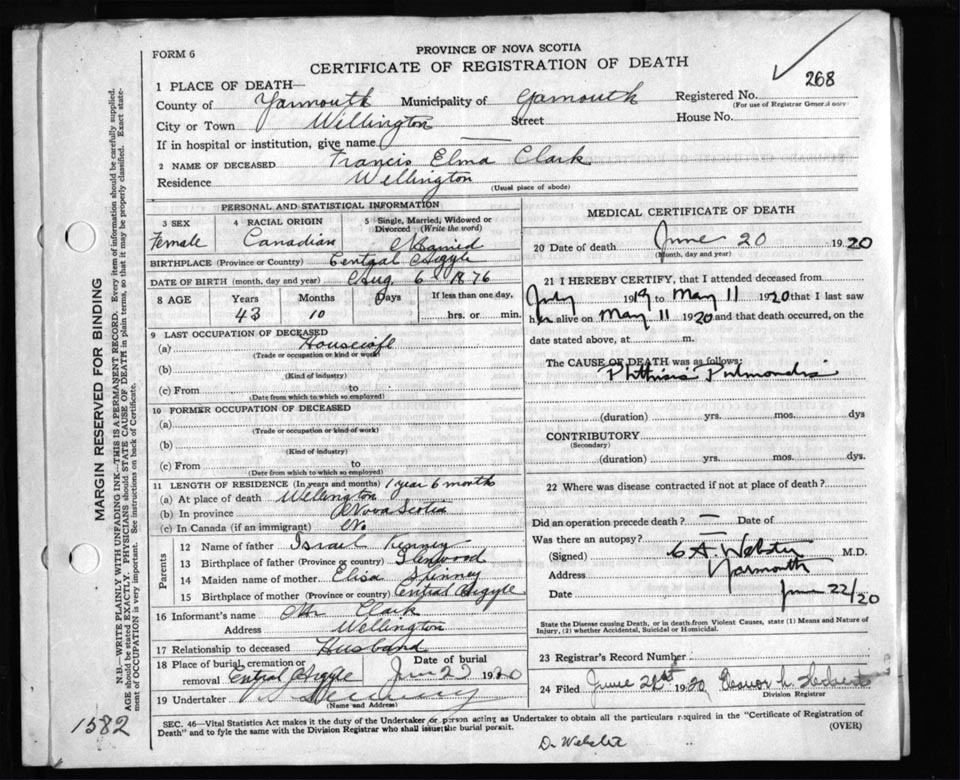 PROVINCE OF NOVA SCOTIA
FORM 6
CERTIFICATE OF REGISTRATION OF DEATH
268
1 PLACE OF DEATH—
County of Yarmouth Municipality of Yarmouth Registered No.
(For use of Registrar General only)
City or Town Wellington Street House No.
If in hospital or institution, give name —
2 NAME OF DECEASED Francis Elma Clark
Residence Wellington
(Usual place of abode)
PERSONAL AND STATISTICAL INFORMATION
3 SEX Female
4 RACIAL ORIGIN Canadian
5 Single, Married, Widowed or Divorced (Write the word) Married
BIRTHPLACE (Province or Country) Central Argyle
DATE OF BIRTH (month, day and year) Aug 6 1876
8 AGE Years 43 Months 10 Days If less than one day, hrs. or min.
9 LAST OCCUPATION OF DECEASED
(a) Housewife
(Trade or occupation or kind or work)
(b)
(Kind of industry)
(c) From to
(Date from which to which so employed)
10 FORMER OCCUPATION OF DECEASED
(a)
(Trade or occupation or kind of work)
(b)
(Kind of industry)
(c) From to
(Date from which to which so employed)
11 LENGTH OF RESIDENCE (In years and months) 1 year 6 months
(a) At place of death Wellington
(b) In province Nova Scotia
(c) In Canada (if an immigrant)
Parents
12 Name of father Israel Kenney
13 Birthplace of father (Province or country) Glenwood
14 Maiden name of mother Elisa Spinney
15 Birthplace of mother (Province or country) Central Argyle
16 Informant's name Mr Clark
Address Wellington
17 Relationship to deceased Husband
18 Place of burial, cremation or removal Central Argyle Date of burial June 1920
19 Undertaker
(Name and Address)
MEDICAL CERTIFICATE OF DEATH
20 Date of death June 20 1920
(Month, day and year)
21 I HEREBY CERTIFY, that I attended deceased from
July 1919 to May 11 1920 that I last saw
her alive on May 11 1920 and that death occurred, on the
date stated above, at m.
The CAUSE OF DEATH was as follows:
Phthisis Pulmonalis
(duration) yrs. mos. dys
CONTRIBUTORY
(Secondary)
(duration) yrs. mos. dys.
22 Where was disease contracted if not at place of death?
Did an operation precede death? — Date of
Was there an autopsy?
(Signed) Webster M.D.
Address Yarmouth
Date June 22/20
State the Disease causing Death, or in death from Violent Causes, state (1) Means and Nature of
Injury, (2) whether Accidental, Suicidal or Homicidal.
23 Registrar's Record Number
24 Filed June 1920
Division Registrar
SEC. 46—Vital Statistics Act makes it the duty of the Undertaker or person acting as Undertaker to obtain all the particulars required in the "Certificate of Registration of
Death" and to fyle the same with the Division Registrar who shall issue the burial permit. (OVER)
Dr Webster
MARGIN RESERVED FOR BINDING
N.B.—WRITE PLAINLY WITH UNFADING INK—THIS IS A PERMANENT RECORD. Every item of information should be carefully supplied.
AGE should be stated EXACTLY. PHYSICIANS should STATE CAUSE OF DEATH in plain terms, so that it may be properly classified. Exact state-
ment of OCCUPATION is very important. See instructions on back of Certificate.
1582